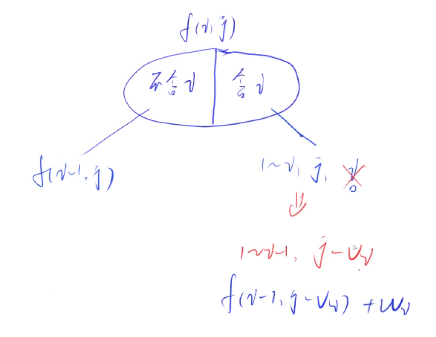 f(i, j)
不含i 含i
f(i-1, j)
1~i, j,
1~i-1, j-vi
f(i-1, j-vi) + wi